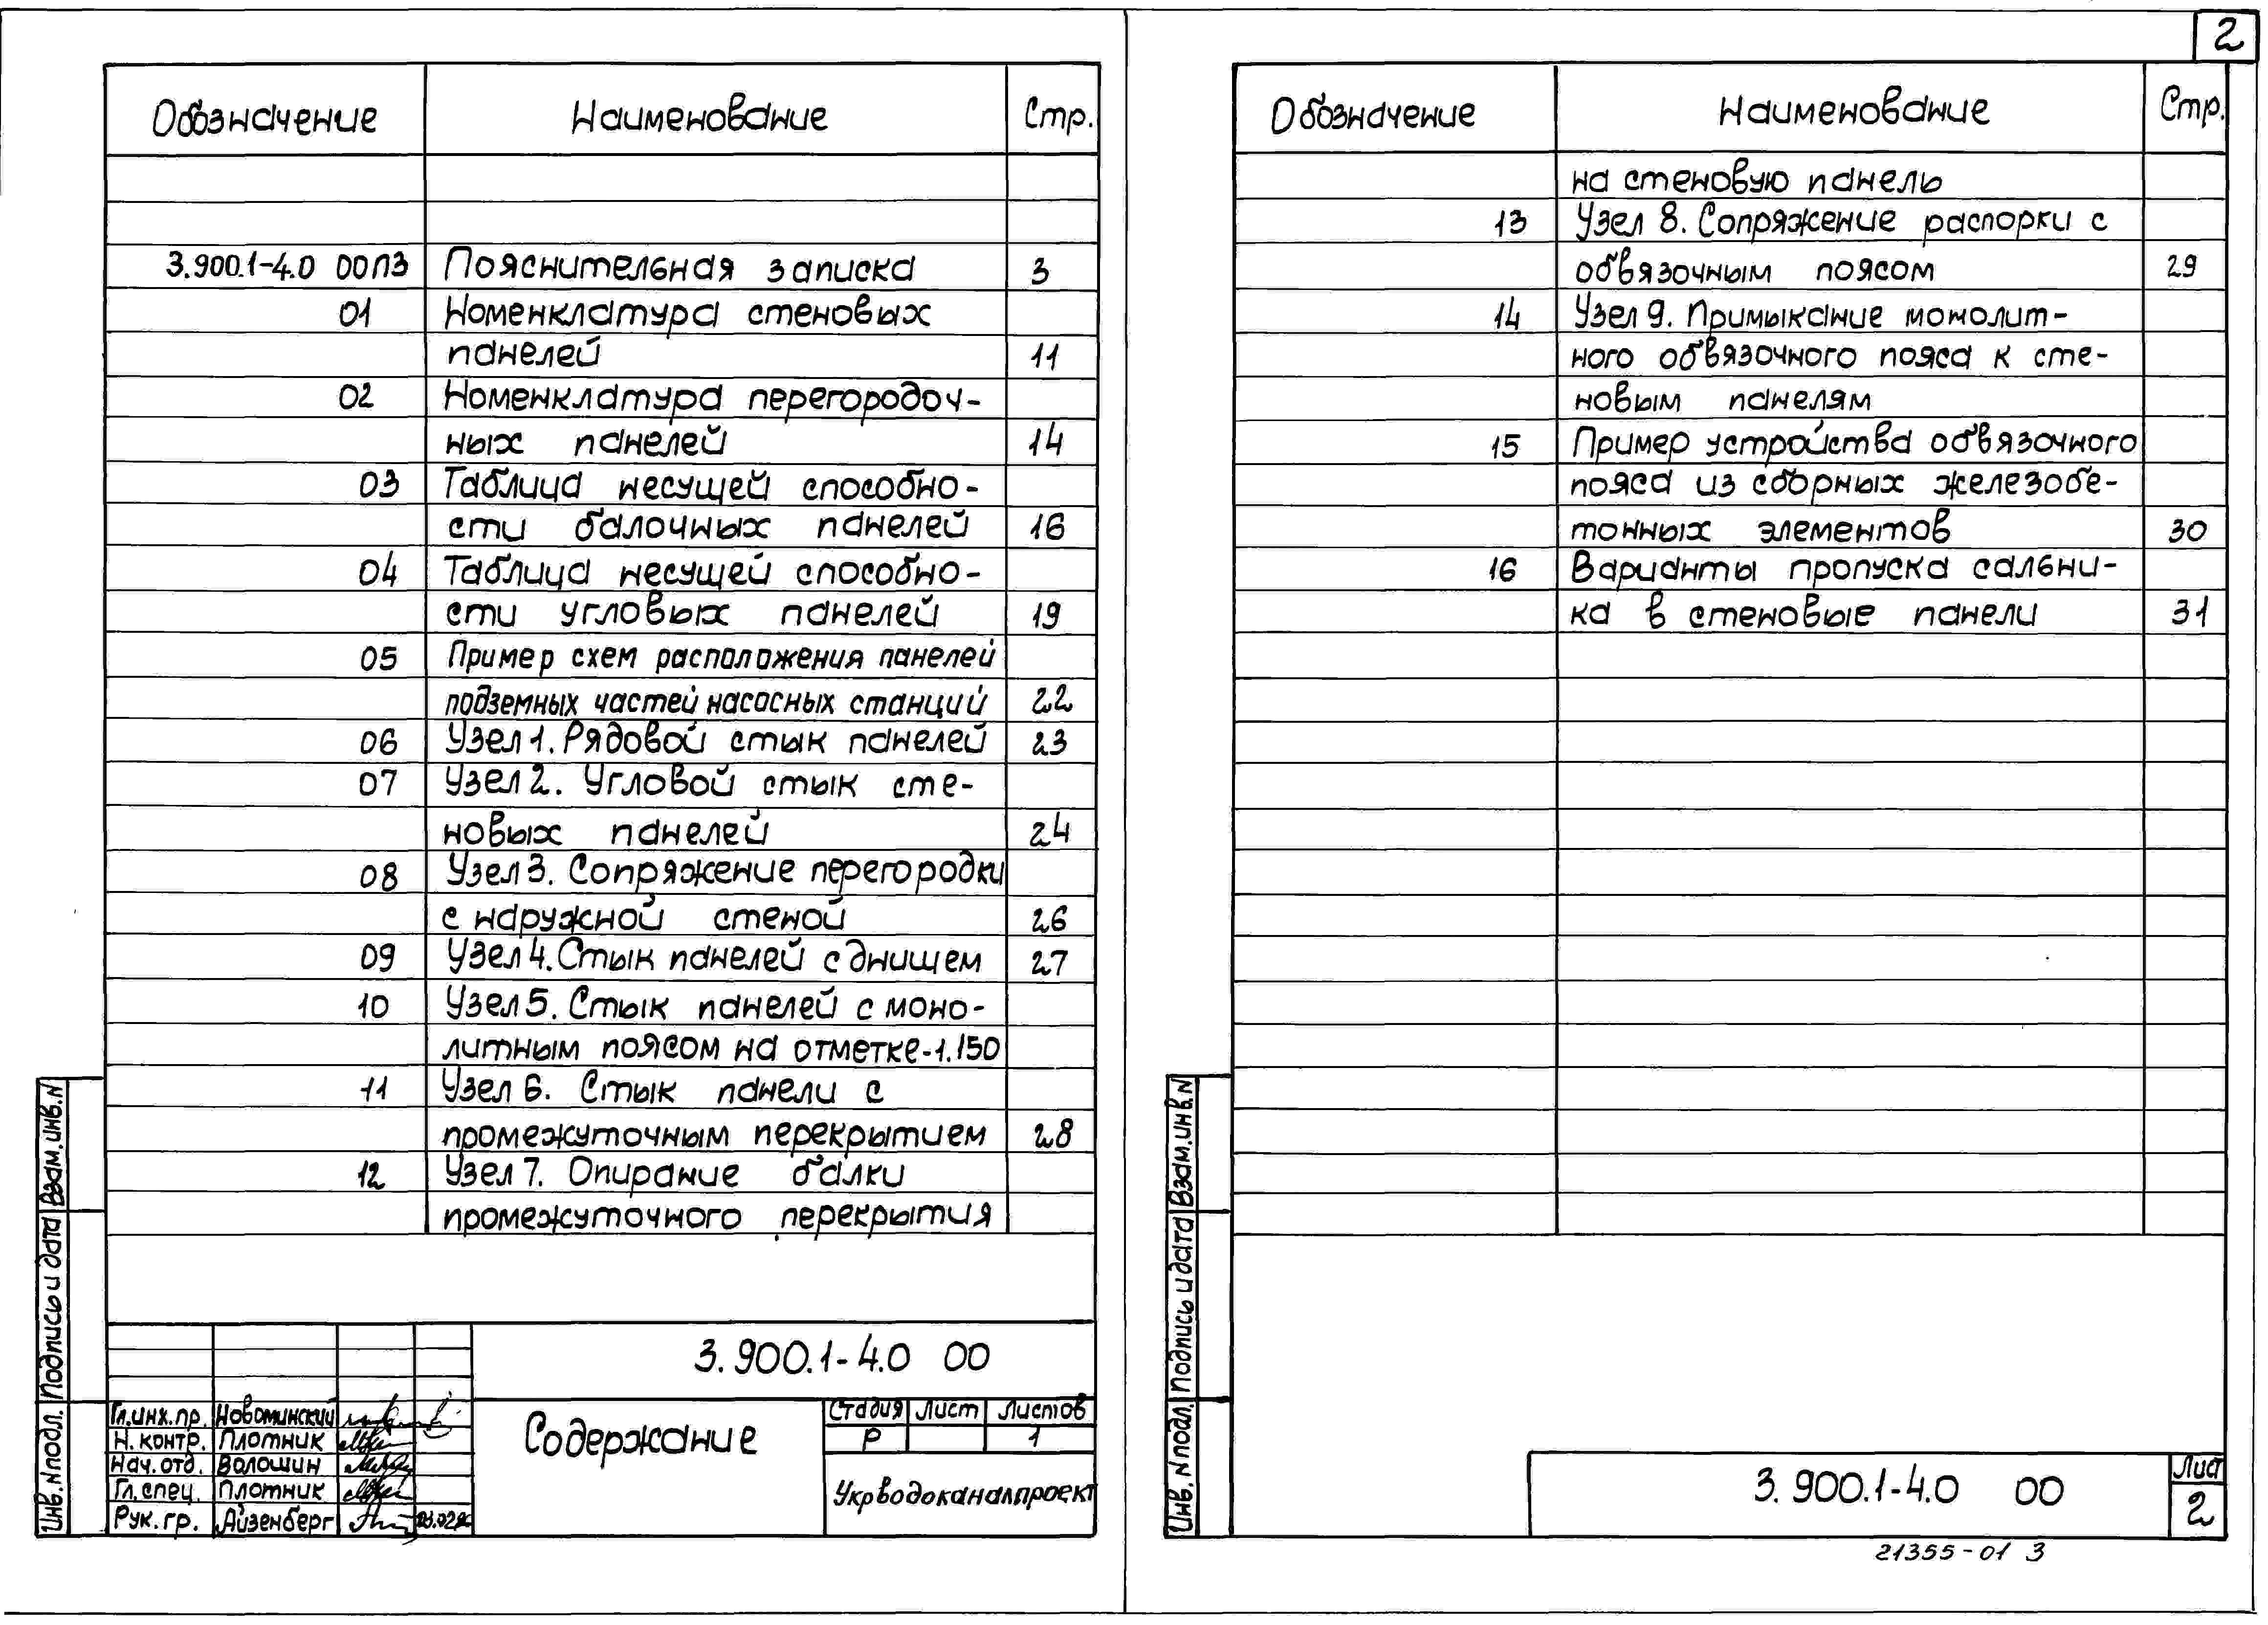 2
Обозначение Наименование Стр.
3.900.1-4.0 00ПЗ Пояснительная записка 3
01 Номенклатура стеновых
панелей 11
02 Номенклатура перегородоч-
ных панелей 14
03 Таблица несущей способно-
сти балочных панелей 16
04 Таблица несущей способно-
сти угловых панелей 19
05 Пример схем расположения панелей
подземных частей насосных станций 22
06 Узел 1. Рядовой стык панелей 23
07 Узел 2. Угловой стык сте-
новых панелей 24
08 Узел 3. Сопряжение перегородки
с наружной стеной 26
09 Узел 4. Стык панелей с днищем 27
10 Узел 5. Стык панелей с моно-
литным поясом на отметке-1.150
11 Узел 6. Стык панели с
промежуточным перекрытием 28
12 Узел 7. Опирание балки
промежуточного перекрытия
3.900.1-4.0 00
Содержание
Стадия Лист Листов
Р 1
Укрводоканалпроект
Гл.инж.пр. Новоминский
Н. контр. Плотник
Нач. отд. Волошин
Гл. спец. Плотник
Рук. гр. Айзенберг
Взам.инв.N
Подпись и дата
Инв. N подл.
Обозначение Наименование Стр.
на стеновую панель
13 Узел 8. Сопряжение распорки с
обвязочным поясом 29
14 Узел 9. Примыкание монолит-
ного обвязочного пояса к сте-
новым панелям
15 Пример устройства обвязочного
пояса из сборных железобе-
тонных элементов 30
16 Варианты пропуска сальни-
ка в стеновые панели 31
Взам.инв.N
Подпись и дата
Инв. N подл.
3.900.1-4.0 00
Лист
2
21355-01 3